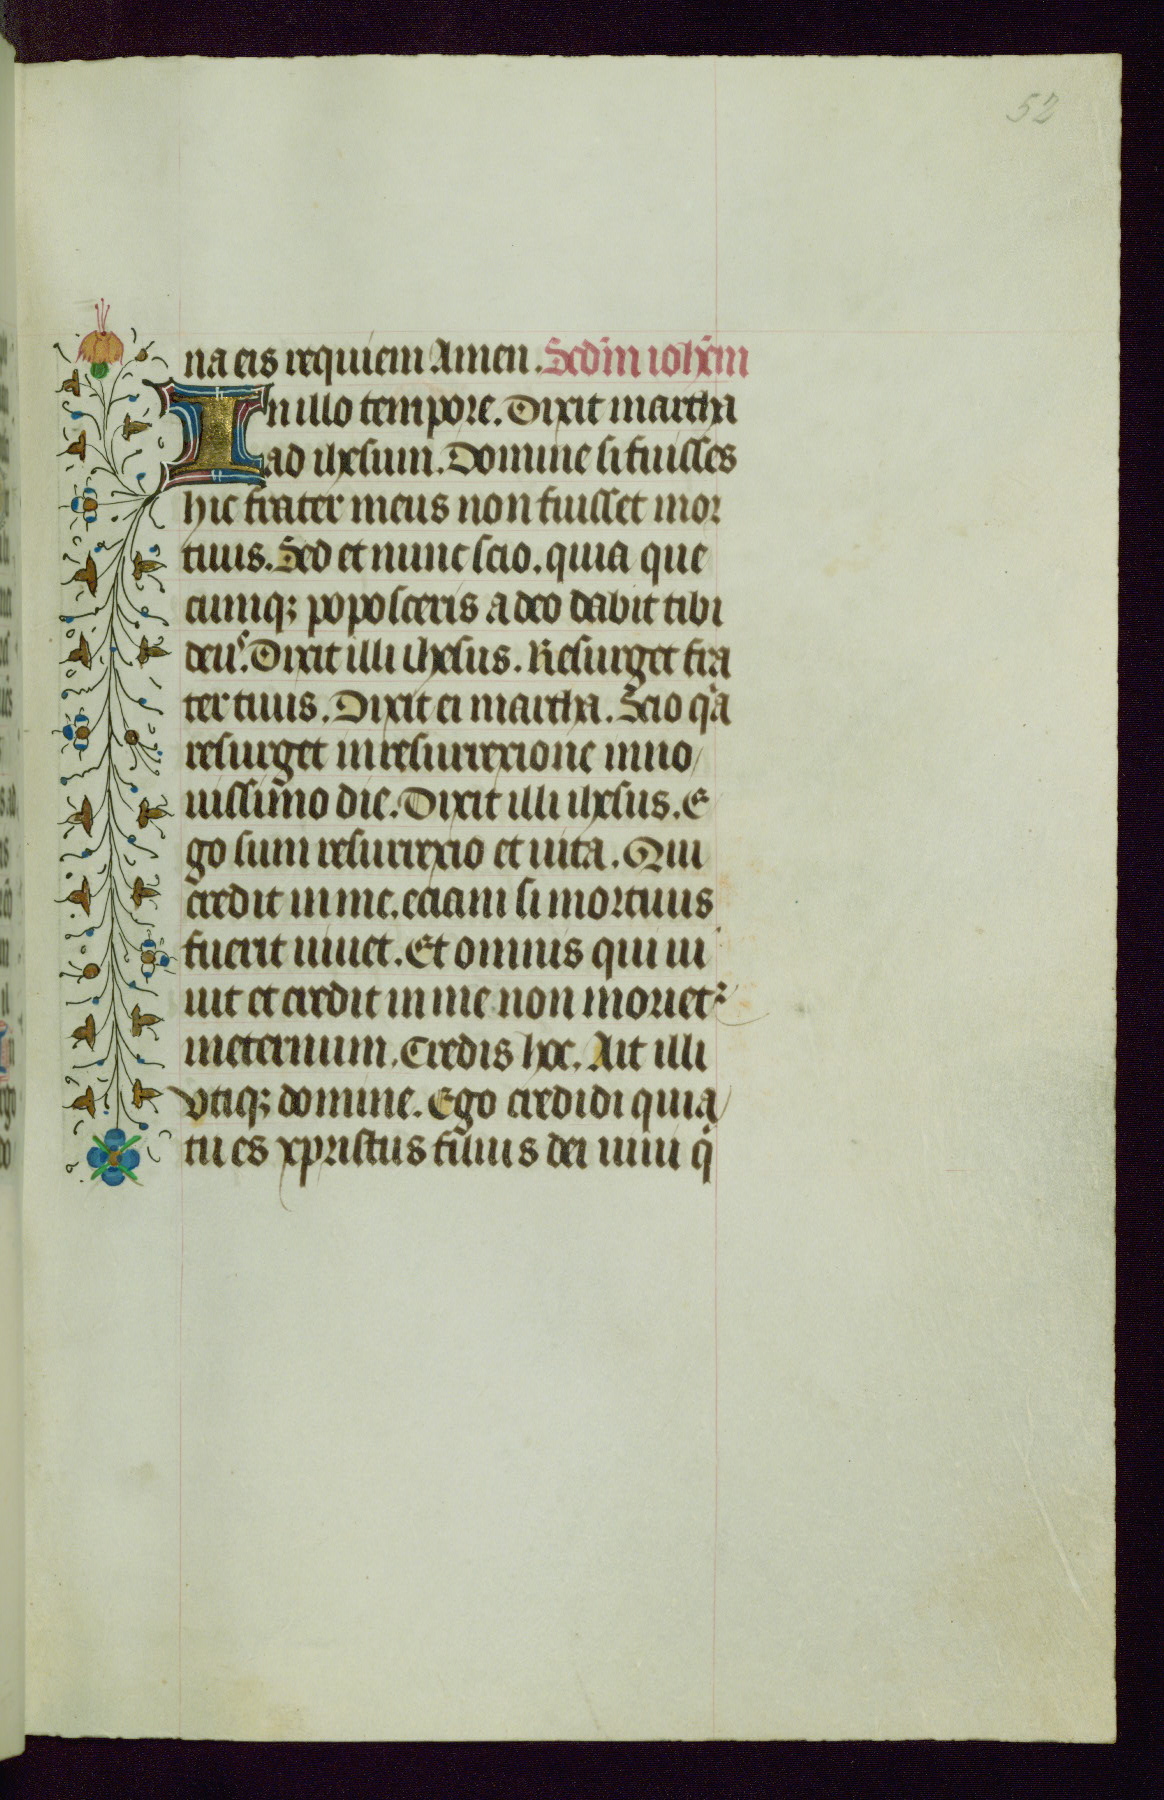 52
na eis requiem Amen. Scd'm ioh'em
In illo tempore. Dixit martha
ad ihesum. Domine si fuisses
hic frater meus non fuisset mor
tuus. Sed et nunc scio. quia que
cumq; poposceris a deo dabit tibi
deus. Dixit illi ihesus. Resurget fra
ter tuus. Dixit ei martha. Scio q'a
resurget in resurrexione in no/
uissimo die. Dixit illi ihesus. E
go sum resurrexio et uita. Qui
credit in me. eciam si mortuus
fuerit uiuet. Et omnis qui ui
uit et credit in me non moriet'
ineternum. Credis hoc. Ait illi
vtiq; domine. Ego credidi quia/
tu es xpristus filius dei uiui q'